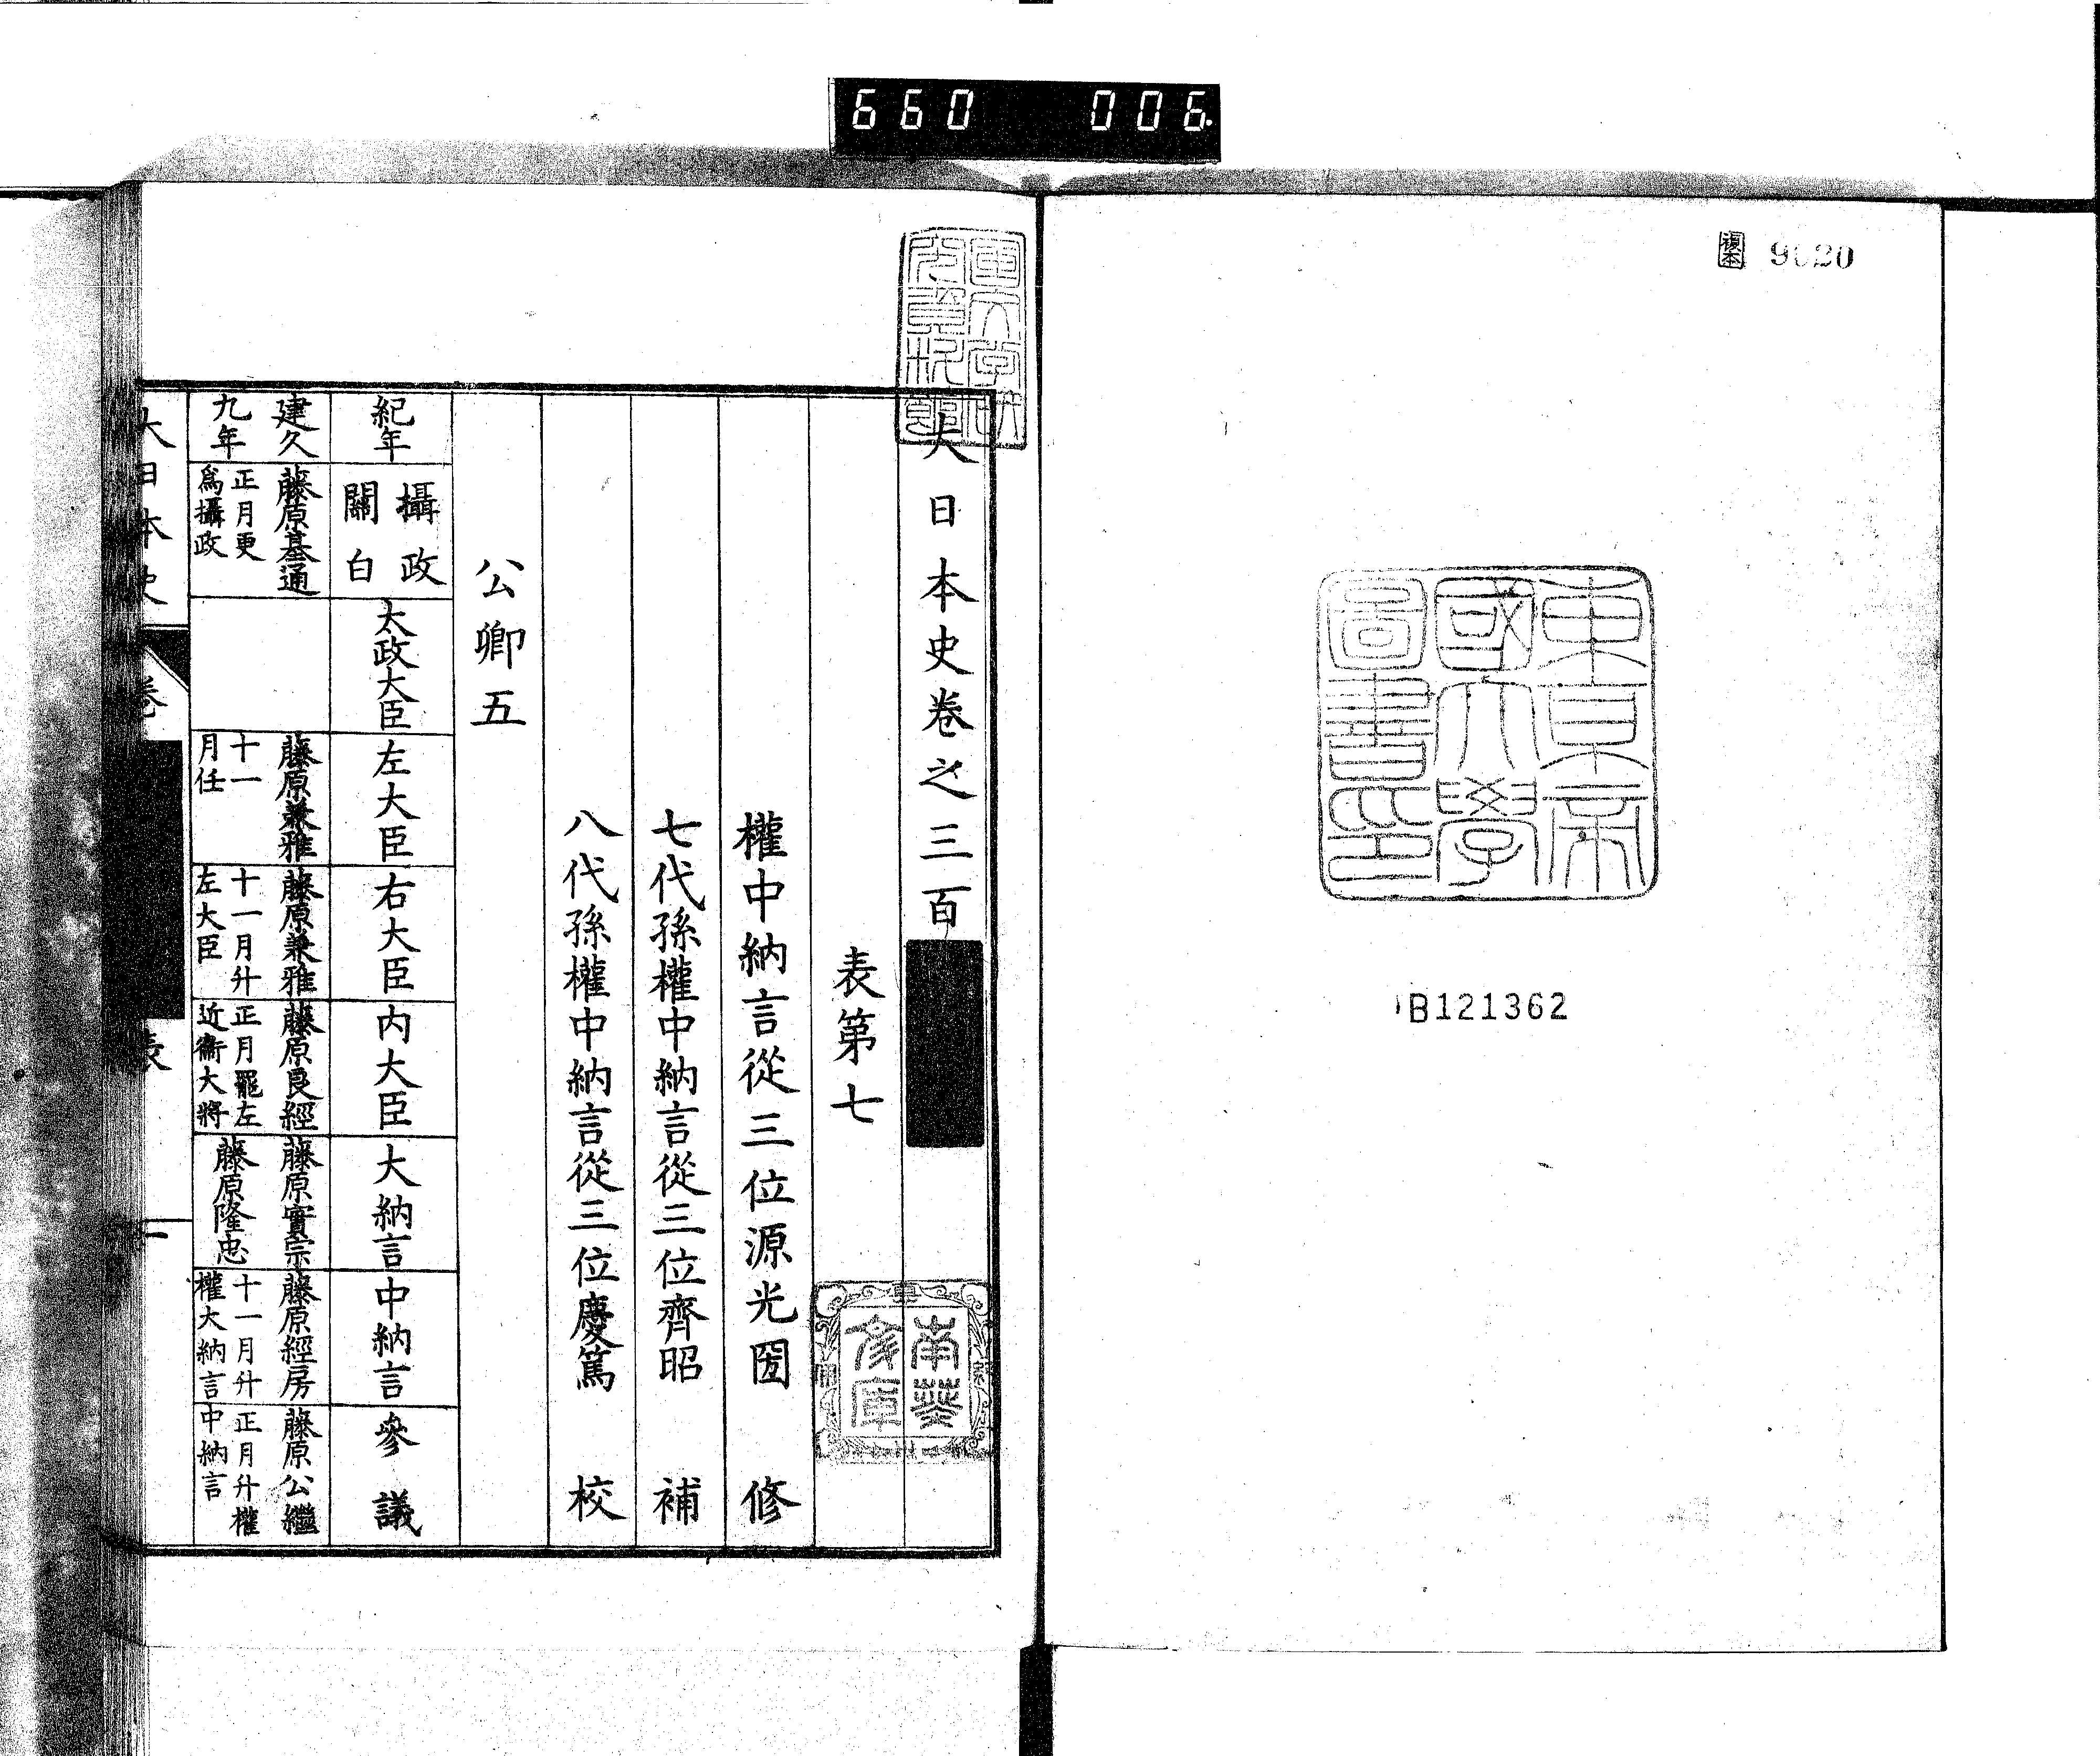 660 006
複本 9020
東京帝
國大學
圖書印
B121362
大日本史卷之三百
表第七
南葵
文庫
權中納言從三位源光圀 修
七代孫權中納言從三位齊昭 補
八代孫權中納言從三位慶篤 校
公卿五
紀年
攝政
關白
太政大臣
左大臣
右大臣
内大臣
大納言
中納言
參議
建久
九年
藤原基通
正月更
爲攝政
藤原兼雅
十一
月任
藤原兼雅
十一月升
左大臣
藤原良經
正月罷左
近衞大將
藤原實宗
藤原隆忠
藤原經房
十一月升
權大納言
藤原公繼
正月升權
中納言
大日本史
卷
表
一